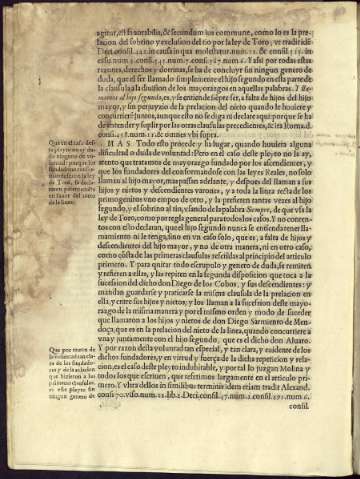 agitur, est fauorabilis, & secundum ius commune, como lo es la pre-
lacion del sobrino y exclusion del tio por la ley de Toro,
Deci. consil.
casu num. Y assi por todas estas
razones, derechos y dotrinas, se ha de concluyr sin ningun genero de
duda, que el ser llamado simplemente el hijo segundo en esta parte de
la clausula a la diuision de los mayorazgos en aquellas palabras. Y lla-
mamos al hijo segundo, es, y se entiende siẽpre ser, a falta de hijos del hijo
mayor, y sin perjuyzio de la prelacion del nieto quando le huuiere y
concurriere juntos, aunque esto no se diga ni declare aqui porque se ha
de entender y suplir por las otras clausulas precedentes,
consil.
MAS Todo esto procede y ha lugar, quando huuiera alguna
dificultad o duda de voluntad: Pero en el caso deste pleyto no la ay,
atento que tratamos de mayorazgo fundado por los ascendientes, y
que los fundadores del conformandose con las leyes Reales, no solo
llaman al hijo mayor, mas passan adelante, y despues del llaman a sus
hijos y nietos y descendientes varones, y a toda la linea recta de los
primogenitos vno empos de otro, y tantas vezes prefieren al hijo
segundo, y el sobrino al tio, vsando de la palabra Siempre, de que vsa la
ley de Toro, como por regla general para todos los casos. Y no conten-
tos con esto declaran, que el hijo segundo nunca se entienda tener lla-
mamiento ni le tenga, sino en vn caso solo, que es, a falta de hijos y
descendientes del hijo mayor, y no de otra manera, ni en otro caso,
como cõsta de las primeras clausulas referidas al principio del articulo
primero. Y para quitar todo escrupulo y genero de duda, se remiten
y refieren a ellas, y las repiten en la segunda disposicion que toca a la
sucession del dicho don Diego de los Cobos, y sus descendientes: y
mandan guardarse y praticarse la misma clausula de la prelacion en
ella, y entre sus hijos y nietos; y los llaman a la sucession deste mayo-
razgo de la misma manera y por el mismo orden y modo de suceder
que llamaron a los hijos y nietos de don Diego Sarmiento de Men-
doça, que es en la prelacion del nieto de la linea, quando concurriere a
vna y juntamente con el hijo segundo, que es el dicho don Aluaro.
Y por razon desta voluntad tan especial, y tan clara, y euidente de los
dichos fundadores, y en virtud y fuerça de la dicha repeticion y rela-
cion, es el caso deste pleyto indubitable, y por tal lo juzgan Molina y
todos los que escriuen, que referimos largamente en el articulo pri-
mero. Y vltra dellos in similibus terminis idem etiam tradit Alexand.
consi. 70. viso. num. 11. lib. 1. Deci. consil.
consil.
Que por razon de
la voluntad tan cla-
ra de los fundado-
res y de la relacion
que hizieron a las
primeras clausulas,
es este pleyto sin
ningun genero de